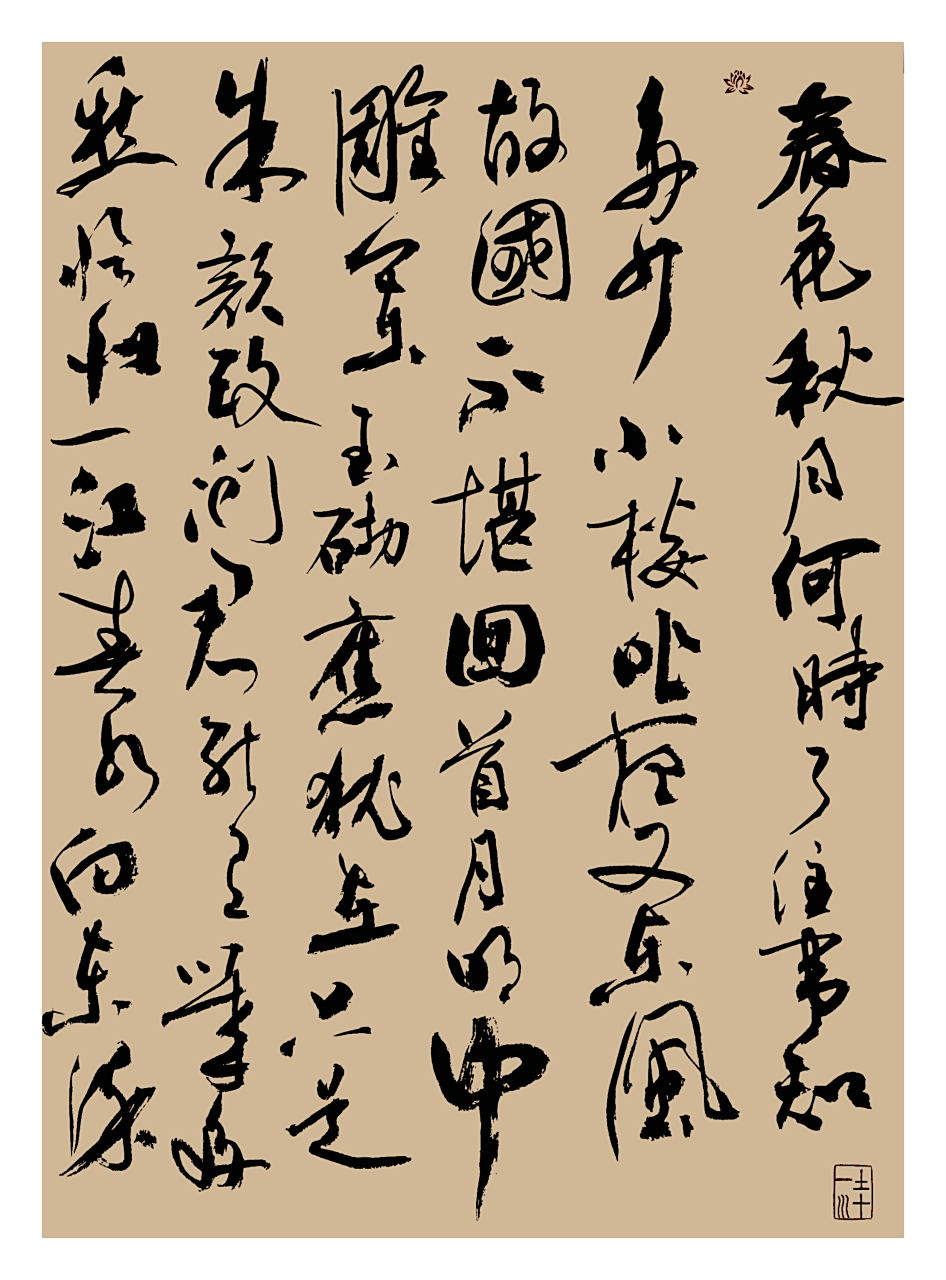 春花秋月何時了往事知
多少小樓昨夜又東風
故國不堪回首月明中
雕闌玉砌應猶在只是
朱顏改問君能有幾多
愁恰似一江春水向東流